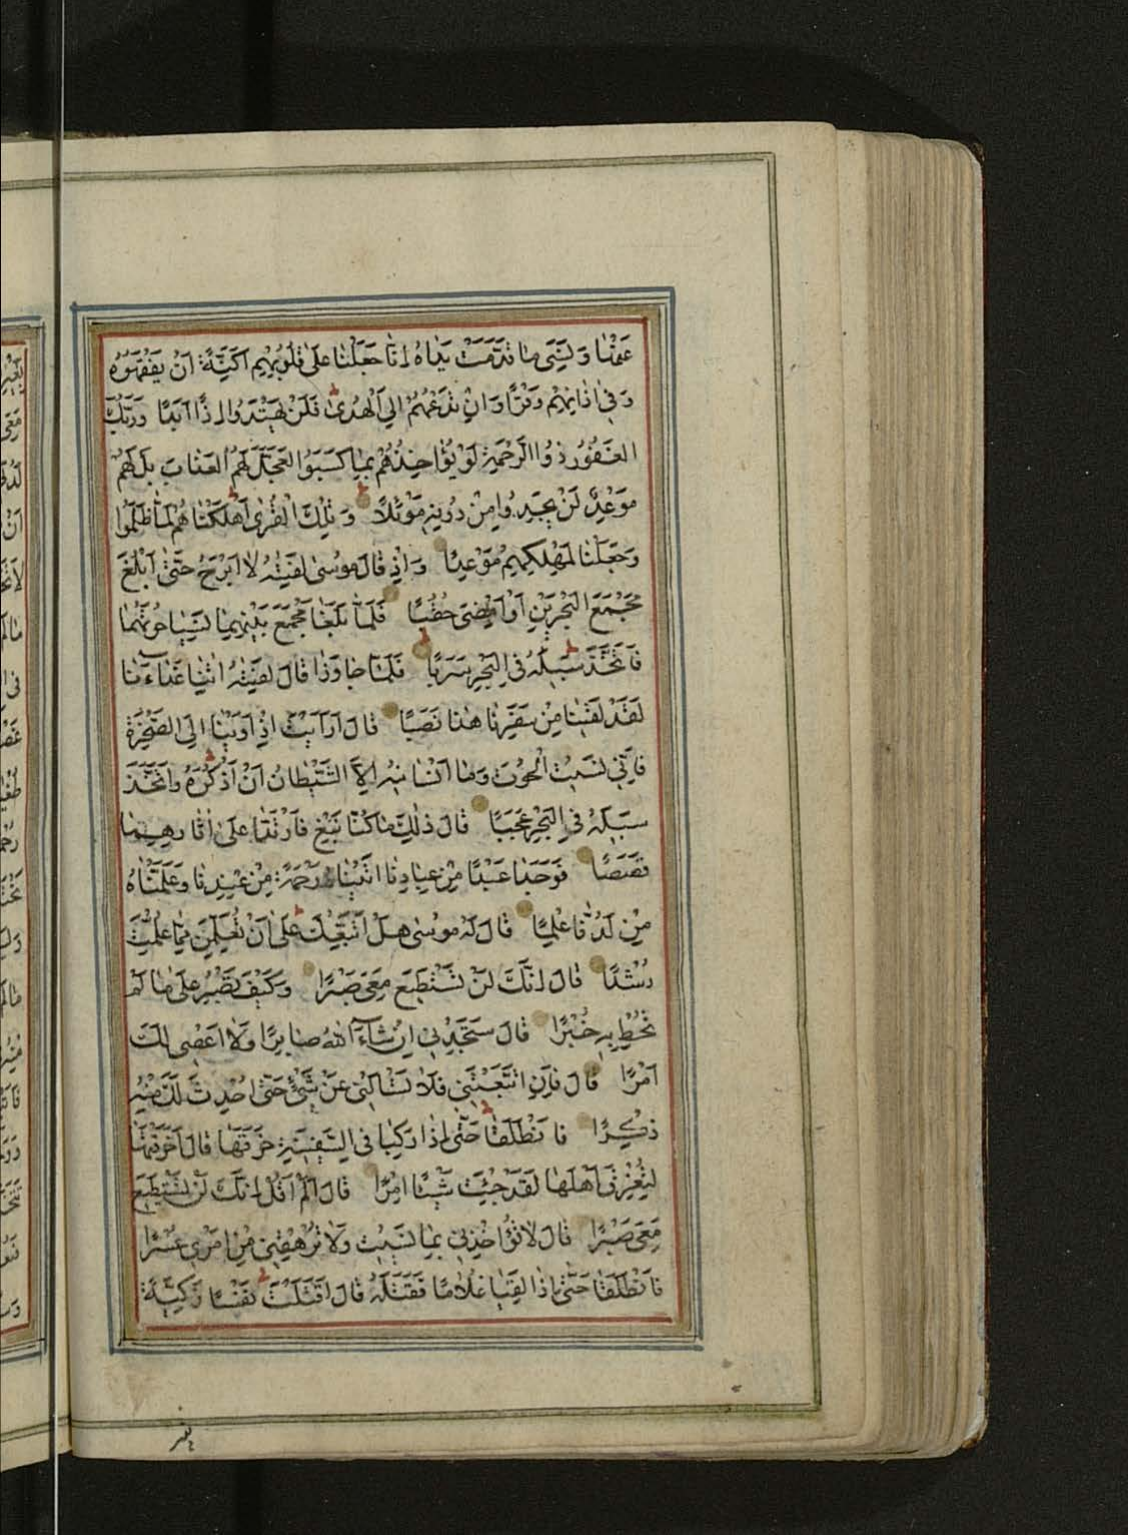 عَنْهَا وَنَسِىَ مَا قَدَّمَتْ يَدَاهُ اِنَّا جَعَلْنَا عَلٰى قُلُوبِهِمْ اَكِنَّةً اَنْ يَفْقَهُوهُ
وَفِى اٰذَانِهِمْ وَقْرًا وَاِنْ تَدْعُهُمْ اِلَى الْهُدٰى فَلَنْ يَهْتَدُوا اِذًا اَبَدًا وَرَبُّكَ
الْغَفُورُ ذُو الرَّحْمَةِ لَوْ يُؤَاخِذُهُمْ بِمَا كَسَبُوا لَعَجَّلَ لَهُمُ الْعَذَابَ بَلْ لَهُمْ
مَوْعِدٌ لَنْ يَجِدُوا مِنْ دُونِهِ مَوْئِلًا وَتِلْكَ الْقُرٰى اَهْلَكْنَاهُمْ لَمَّا ظَلَمُوا
وَجَعَلْنَا لِمَهْلِكِهِمْ مَوْعِدًا وَاِذْ قَالَ مُوسٰى لِفَتٰيهُ لَا اَبْرَحُ حَتّٰى اَبْلُغَ
مَجْمَعَ الْبَحْرَيْنِ اَوْ اَمْضِىَ حُقُبًا فَلَمَّا بَلَغَا مَجْمَعَ بَيْنِهِمَا نَسِيَا حُوتَهُمَا
فَاتَّخَذَ سَبِيلَهُ فِى الْبَحْرِ سَرَبًا فَلَمَّا جَاوَزَا قَالَ لِفَتٰيهُ اٰتِنَا غَدَاۤءَنَا
لَقَدْ لَقِينَا مِنْ سَفَرِنَا هٰذَا نَصَبًا قَالَ اَرَاَيْتَ اِذْ اَوَيْنَا اِلَى الصَّخْرَةِ
فَاِنِّى نَسِيتُ الْحُوتَ وَمَا اَنْسَانِيهُ اِلَّا الشَّيْطَانُ اَنْ اَذْكُرَهُ وَاتَّخَذَ
سَبِيلَهُ فِى الْبَحْرِ عَجَبًا قَالَ ذٰلِكَ مَا كُنَّا نَبْغِ فَارْتَدَّا عَلٰى اٰثَارِهِمَا
قَصَصًا فَوَجَدَا عَبْدًا مِنْ عِبَادِنَا اٰتَيْنَاهُ رَحْمَةً مِنْ عِنْدِنَا وَعَلَّمْنَاهُ
مِنْ لَدُنَّا عِلْمًا قَالَ لَهُ مُوسٰى هَلْ اَتَّبِعُكَ عَلٰى اَنْ تُعَلِّمَنِ مِمَّا عُلِّمْتَ
رُشْدًا قَالَ اِنَّكَ لَنْ تَسْتَطِيعَ مَعِىَ صَبْرًا وَكَيْفَ تَصْبِرُ عَلٰى مَا لَمْ
تُحِطْ بِهِ خُبْرًا قَالَ سَتَجِدُنِى اِنْ شَاۤءَ اللهُ صَابِرًا وَلَا اَعْصِى لَكَ
اَمْرًا قَالَ فَاِنِ اتَّبَعْتَنِى فَلَا تَسْئَلْنِى عَنْ شَىْءٍ حَتّٰى اُحْدِثَ لَكَ مِنْهُ
ذِكْرًا فَانْطَلَقَا حَتّٰى اِذَا رَكِبَا فِى السَّفِينَةِ خَرَقَهَا قَالَ اَخَرَقْتَهَا
لِتُغْرِقَ اَهْلَهَا لَقَدْ جِئْتَ شَيْئًا اِمْرًا قَالَ اَلَمْ اَقُلْ اِنَّكَ لَنْ تَسْتَطِيعَ
مَعِىَ صَبْرًا قَالَ لَا تُؤَاخِذْنِى بِمَا نَسِيتُ وَلَا تُرْهِقْنِى مِنْ اَمْرِى عُسْرًا
فَانْطَلَقَا حَتّٰى اِذَا لَقِيَا غُلَامًا فَقَتَلَهُ قَالَ اَقَتَلْتَ نَفْسًا زَكِيَّةً